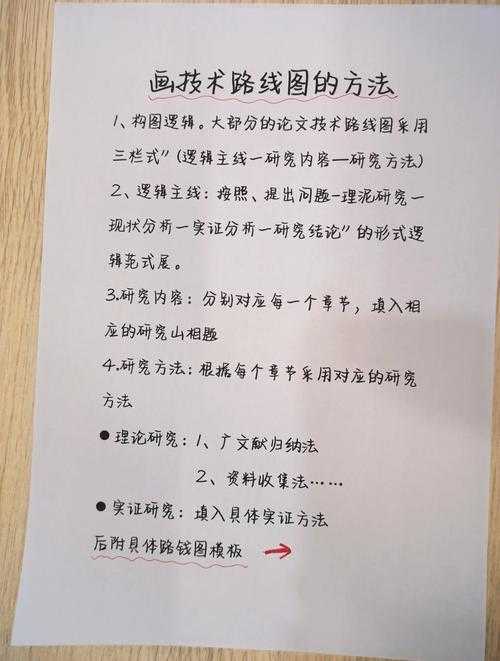 画技术路线图的方法
1、构图逻辑。大部分的论文技术路线图采用
三栏式"(逻辑主线一研究内容—研究方法)
2、逻辑主线：按照、提出问题-理泥研究一
现状分析一实证分析一研究结论"的形式逻
辑莵式展。
3.研究内容：分别对应每一个章节，填入相
应的研究山相题
4.研究方法：根据每个章节采用对应的研究
方法
●理论研究：1、广文献归纳法
2、资料收集法……
●实证研究：填入具体实证方法
后附具体路钱图模板 →